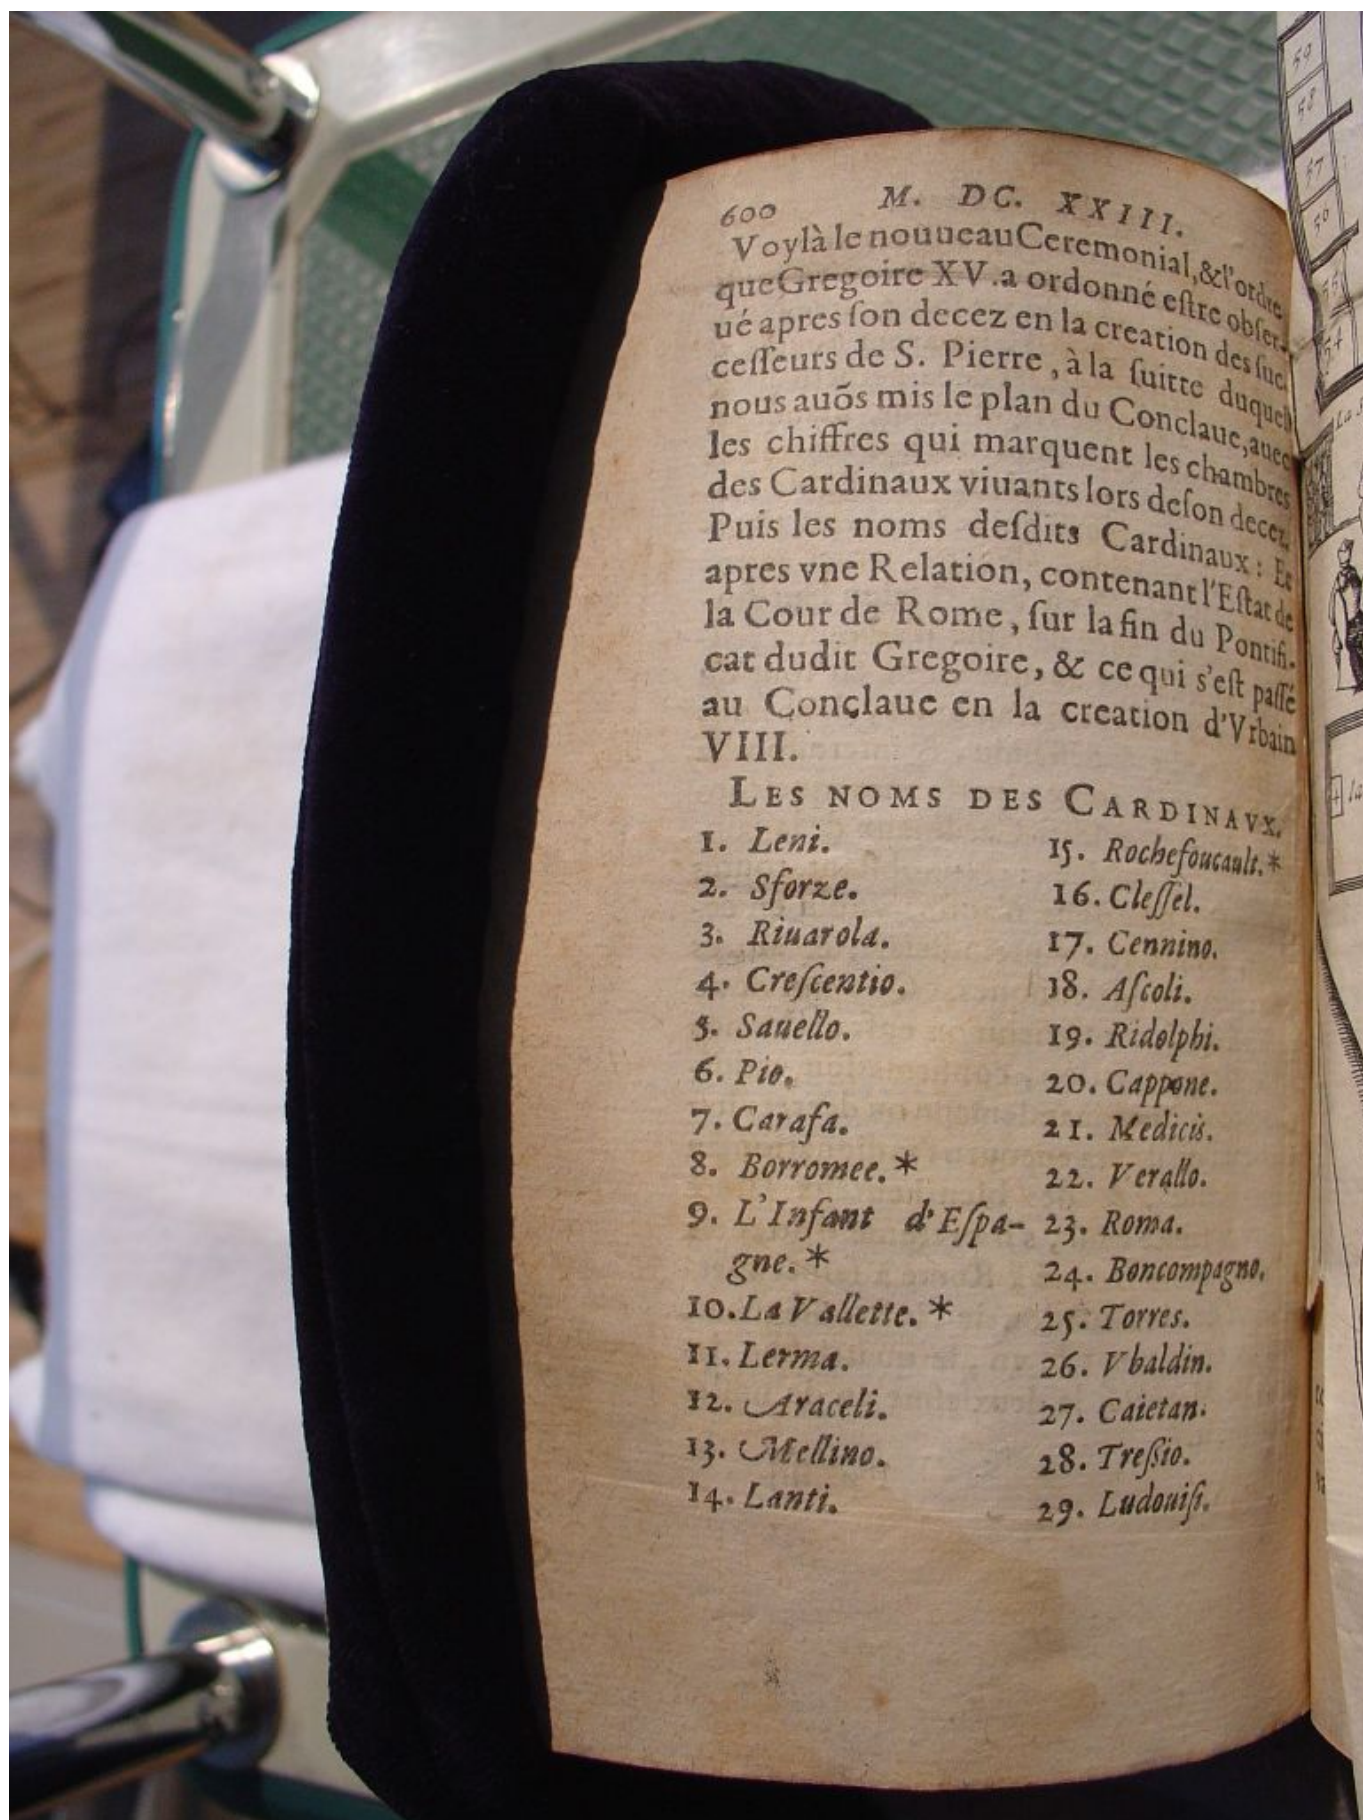 600 M. DC. XXIII.
Voylà le nouueau Ceremonial, & l'ordre
que Gregoire XV. a ordonné eſtre obſer-
ué apres ſon decez en la creation des ſuc-
ceſſeurs de S. Pierre, à la ſuitte duquel
nous auõs mis le plan du Conclaue, auec
les chiffres qui marquent les chambres
des Cardinaux viuants lors de ſon decez.
Puis les noms deſdits Cardinaux : Et
apres vne Relation, contenant l'Eſtat de
la Cour de Rome, ſur la fin du Pontifi-
cat dudit Gregoire, & ce qui s'eſt paſſé
au Conclaue en la creation d'Vrbain
VIII.
LES NOMS DES CARDINAVX.
1. Leni.
2. Sforze.
3. Riuarola.
4. Creſcentio.
5. Sauello.
6. Pio.
7. Carafa.
8. Borromee.*
9. L'Infant d'Eſpa-
gne.*
10. La Vallette.*
11. Lerma.
12. Araceli.
13. Mellino.
14. Lanti.
15. Rochefoucault.*
16. Cleſſel.
17. Cennino.
18. Aſcoli.
19. Ridolphi.
20. Cappone.
21. Medicis.
22. Verallo.
23. Roma.
24. Boncompagno.
25. Torres.
26. Vbaldin.
27. Caietan.
28. Treſſio.
29. Ludouiſi.
59
58
57
55
54
La